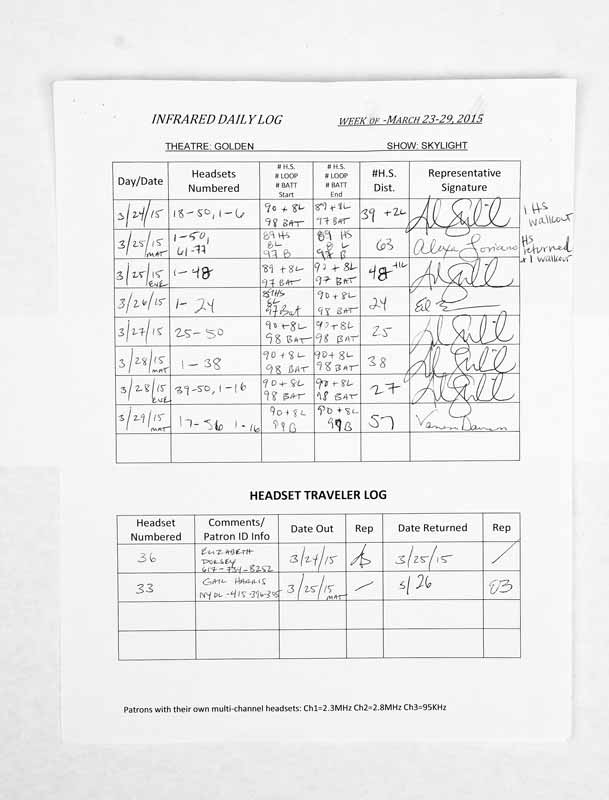 INFRARED DAILY LOG
WEEK OF -MARCH 23-29, 2015
THEATRE: GOLDEN
SHOW: SKYLIGHT
Day/Date
Headsets
Numbered
# H.S.
# LOOP
# BATT
Start
# H.S.
# LOOP
# BATT
End
#H.S.
Dist.
Representative
Signature
3/24/15
18-50, 1-6
90 + 8L
98 BAT
89 + 8L
97 BAT
39 + 2L
1 HS
walkout
3/25/15
MAT
1-50,
61-77
89 HS
8L
97 B
89 HS
8 L
97 B
63
HS
returned
+ 1 walkout
3/25/15
EVE
1-48
89 + 8L
97 BAT
90 + 8L
98 BAT
48 +1L
3/26/15
1- 24
89 HS
8L
97 Bat
90 + 8L
98 BAT
24
3/27/15
25-50
90 + 8L
98 BAT
90 + 8L
98 BAT
25
3/28/15
MAT
1-38
90 + 8L
98 BAT
90 + 8L
98 BAT
38
3/28/15
EVE
39-50, 1-16
90 + 8L
98 BAT
90 + 8L
98 BAT
27
3/29/15
MAT
17-56 1-16
90 + 8L
90 + 8L
57
HEADSET TRAVELER LOG
Headset
Numbered
Comments/
Patron ID Info
Date Out
Rep
Date Returned
Rep
36
ELIZABETH
DORSEY
617-734-8252
3/24/15
3/25/15
33
GAIL HARRIS
3/25/15
MAT
3/26
Patrons with their own multi-channel headsets: Ch1=2.3MHz Ch2=2.8MHz Ch3=95KHz